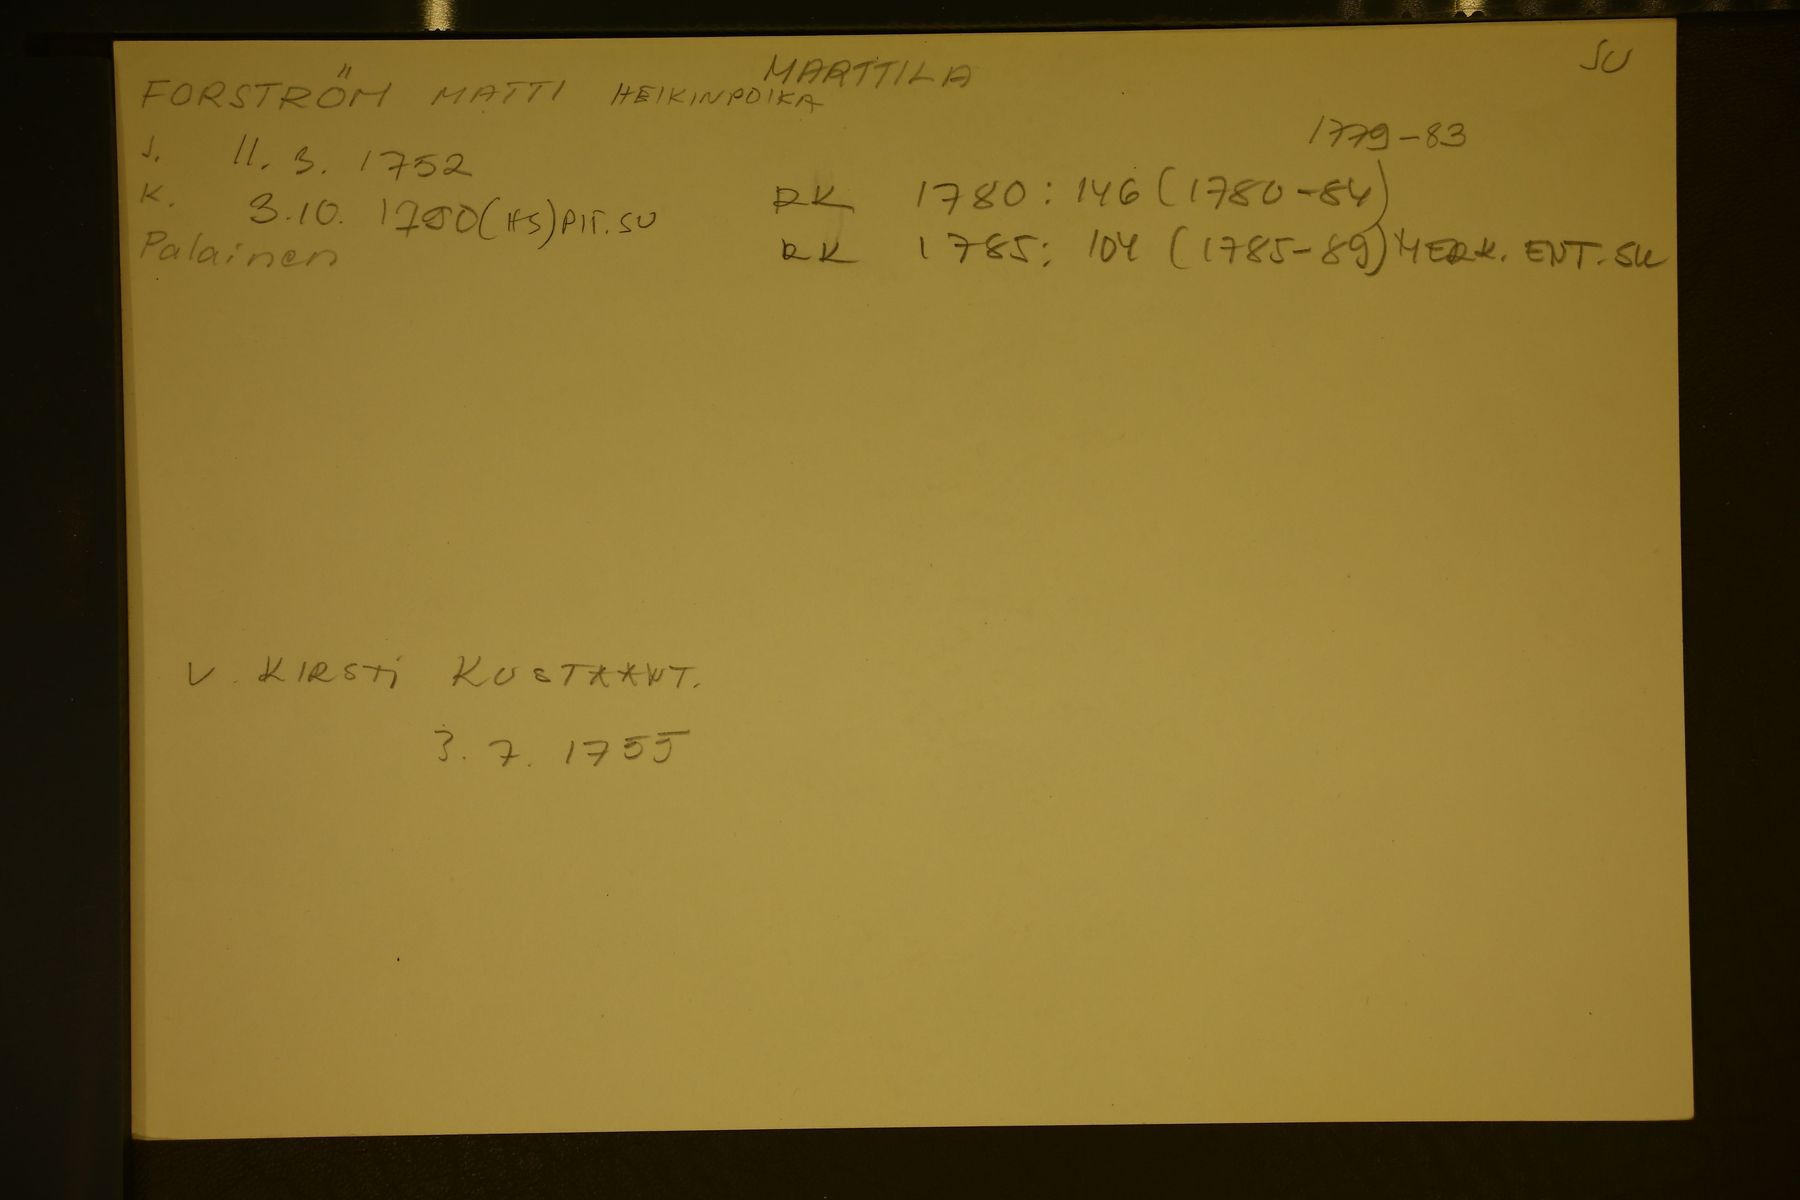 MARTTILA
SU
FORSTRÖM MATTI HEIKINPOIKA
1779-83
S. 11. 3. 1752
RK 1780: 146 (1780-84)
K. 3.10. (HS) PIT. SU
RK 1785: 104 (1785-89) MERK. ENT. SU
Palainen
V. KIRSTI KUSTAANT.
3. 7. 1755